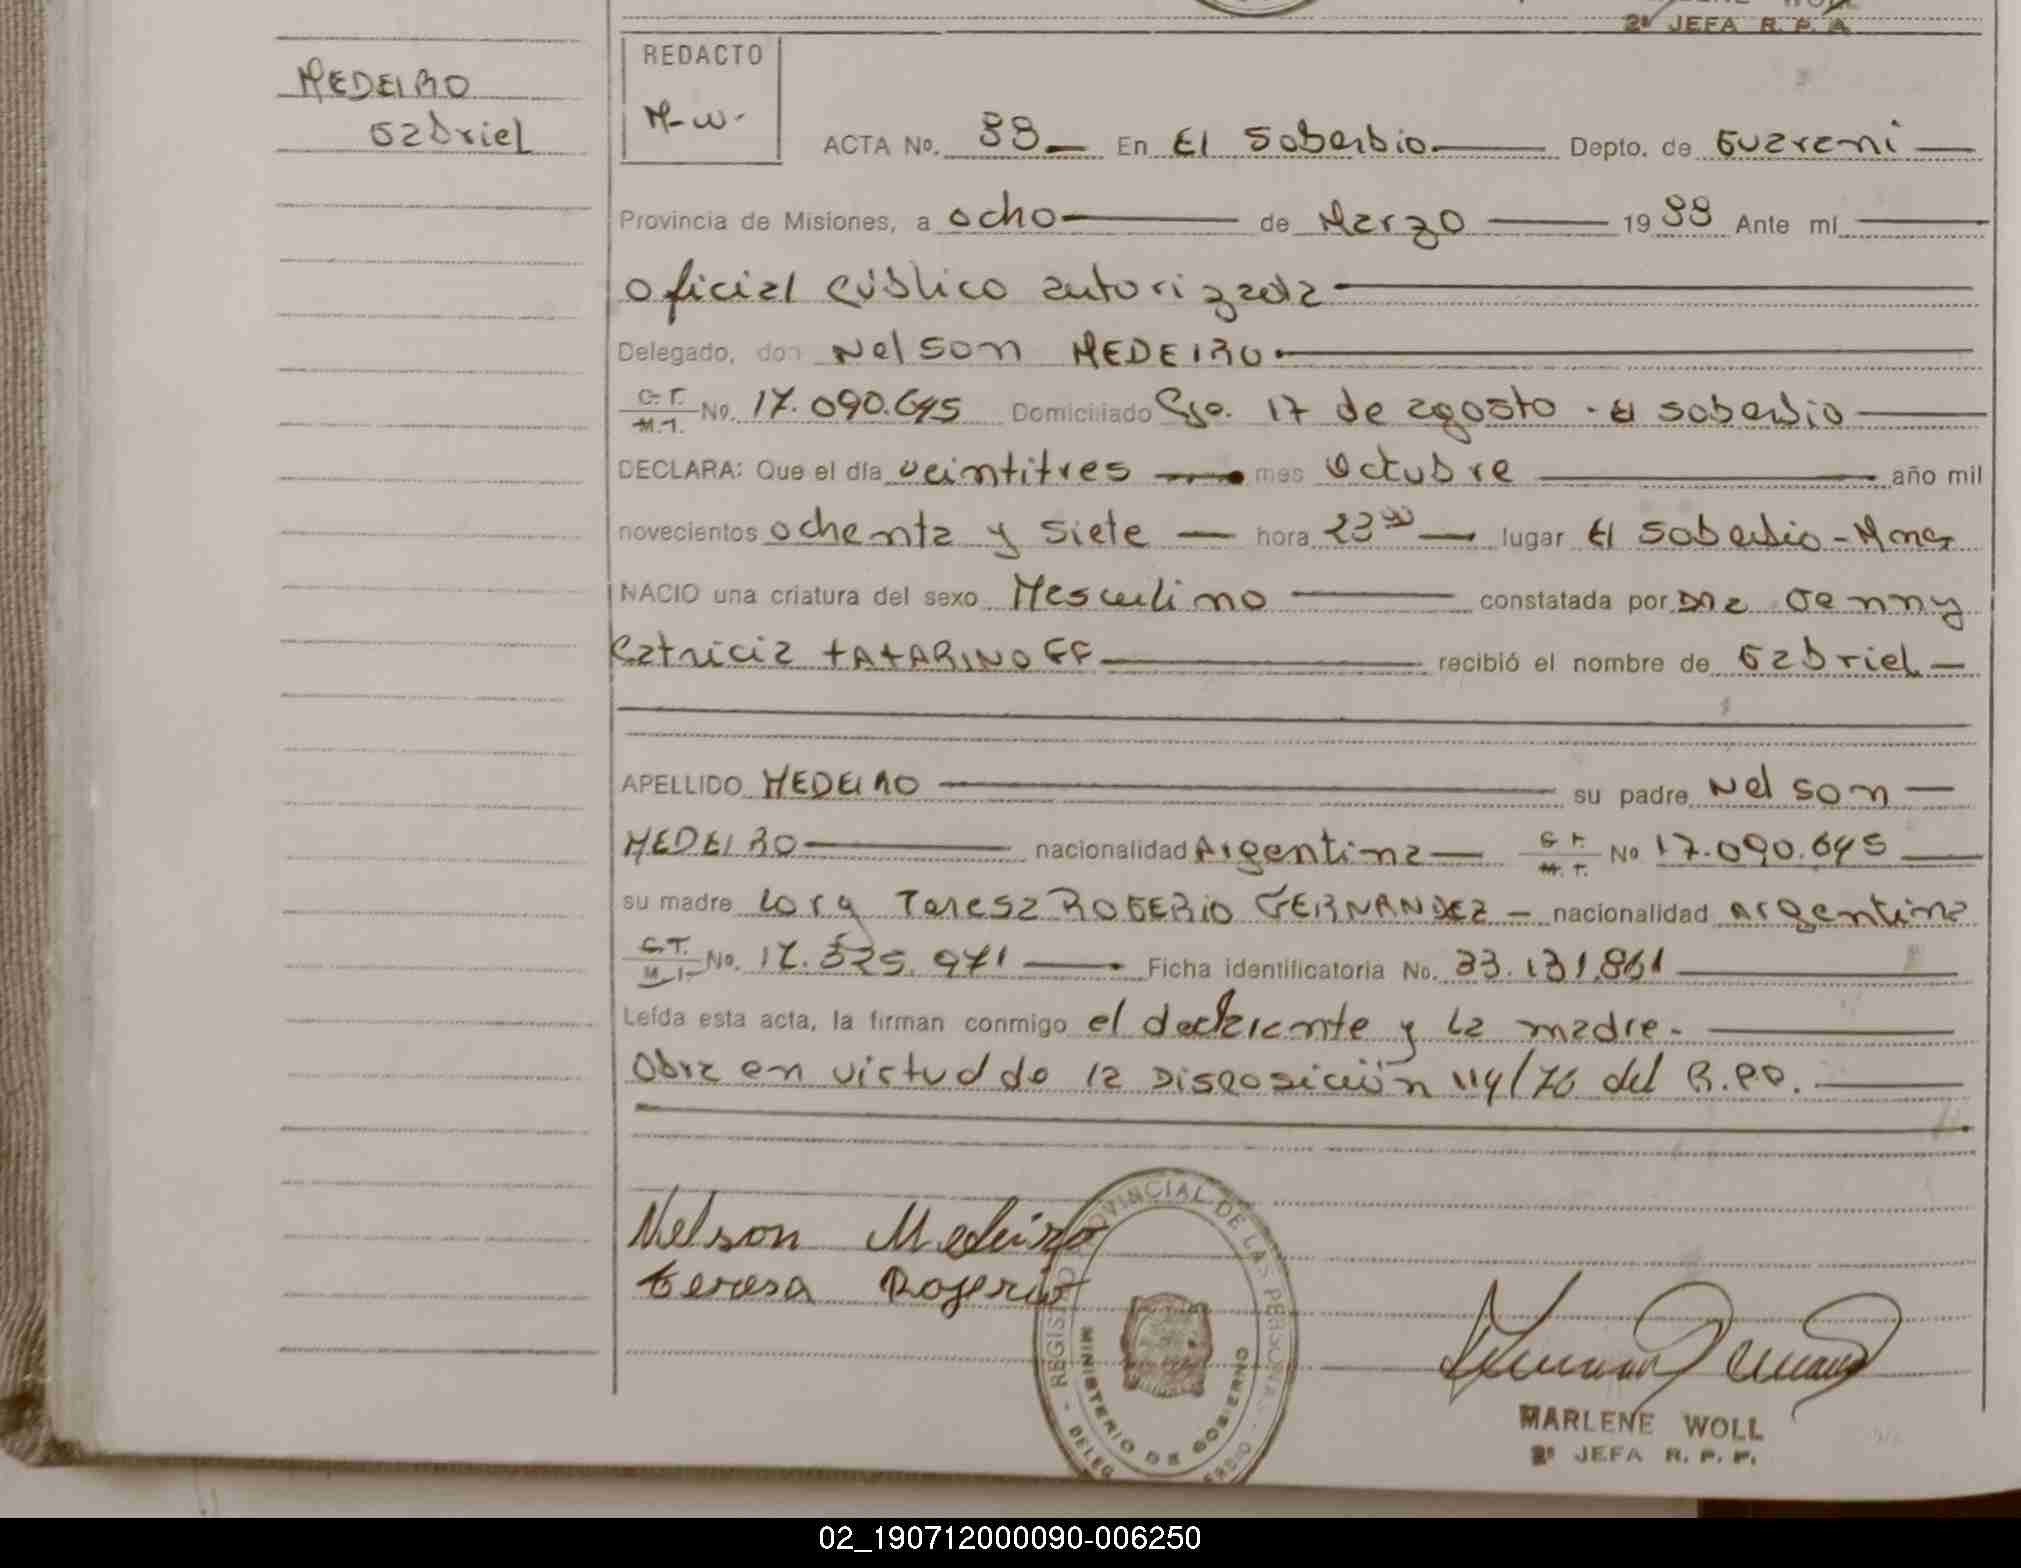 2ª JEFA R. P. A.
MEDEIRO
Gabriel
REDACTO
M-W-
ACTA No. 88 En El Soberbio Depto. de Guarani
Provincia de Misiones, a ocho de Marzo 1988 Ante mí
oficial Público autorizada
Delegado, don Nelson MEDEIRO
C.I. M.I. No. 17.090.645 Domiciliado Bo. 17 de agosto - El Soberbio
DECLARA: Que el día veintitres mes Octubre año mil
novecientos ochenta y siete hora 23⁰⁰ lugar El Soberbio - Mnes
NACIO una criatura del sexo Masculino constatada por Dra Jenny
Patricia TATARINOFF recibió el nombre de Gabriel
APELLIDO MEDEIRO su padre Nelson
MEDEIRO nacionalidad Argentina C.I. M.I. No 17.090.645
su madre Lory Teresa ROGERIO FERNANDEZ nacionalidad Argentina
C.I. M.I. No. 17.525.971 Ficha identificatoria No. 33.131.861
Leída esta acta, la firman conmigo el declarante y la madre.
Obra en virtud de la Disposición 114/76 del R.P.P.
Nelson Medeiro
teresa Rogerio
REGISTRO PROVINCIAL DE LAS PERSONAS
MINISTERIO DE GOBIERNO
MARLENE WOLL
2ª JEFA R. P. P.
02_190712000090-006250